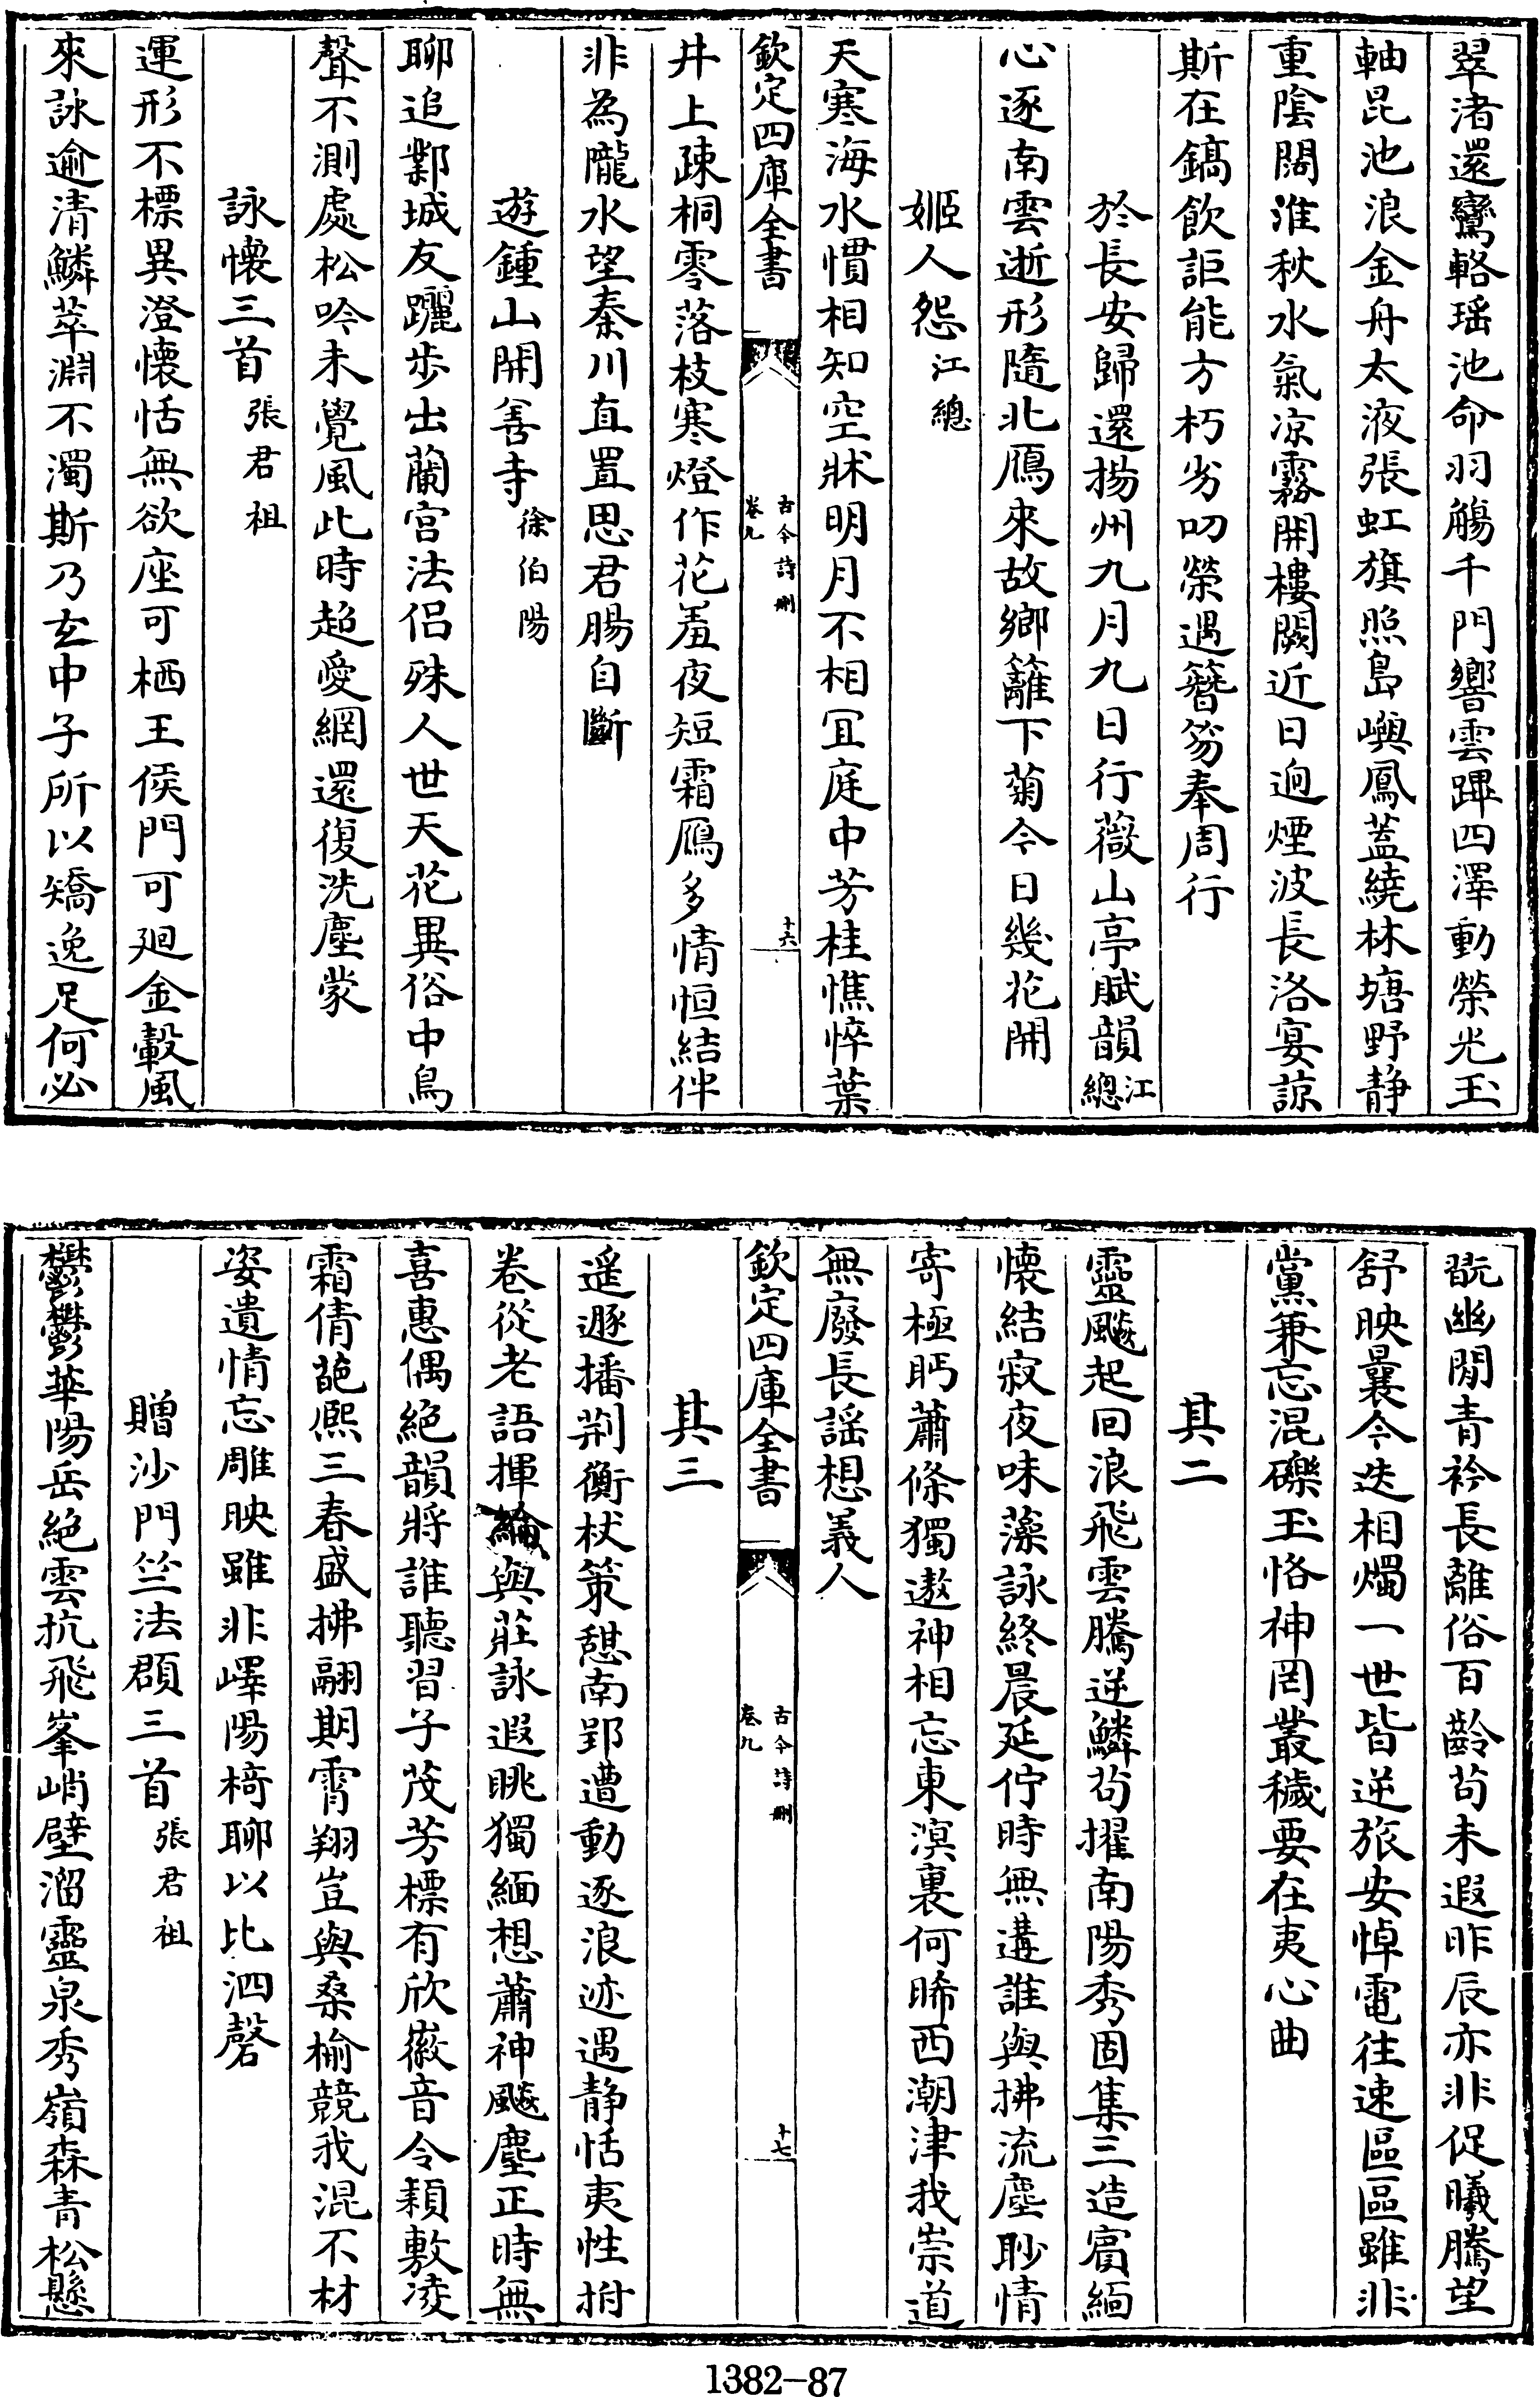 翠渚還鸞輅瑤池命羽觴千門響雲蹕四澤動榮光玉
軸昆池浪金舟太液張虹旗照島嶼鳳蓋繞林塘野靜
重陰闊淮秋水氣涼霧開樓闕近日逈煙波長洛宴諒
斯在鎬飲詎能方朽劣叨榮遇簪笏奉周行
於長安歸還揚州九月九日行薇山亭賦韻江總
心逐南雲逝形隨北鴈來故鄉籬下菊今日幾花開
姬人怨江總
天寒海水慣相知空牀明月不相冝庭中芳桂憔悴葉
欽定四庫全書
古今詩刪
卷九
十六
井上疎桐零落枝寒燈作花羞夜短霜鴈多情恒結伴
非為隴水望秦川直置思君腸自斷
遊鍾山開善寺徐伯陽
聊追鄴城友躧步出蘭宮法侶殊人世天花異俗中鳥
聲不測處松吟未覺風此時超愛網還復洗塵蒙
詠懷三首張君祖
運形不標異澄懷恬無欲座可栖王侯門可廻金轂風
來詠逾清鱗萃淵不濁斯乃玄中子所以矯逸足何必
翫幽閒青衿長離俗百齡苟未遐昨辰亦非促曦騰望
舒映曩今迭相燭一世皆逆旅安悼電往速區區雖非
黨兼忘混礫玉恪神罔叢穢要在夷心曲
其二
靈飈起回浪飛雲騰逆鱗苟擢南陽秀固集三造賓緬
懷結寂夜味藻詠終晨延佇時無遘誰與拂流塵眇情
寄極眄蕭條獨遨神相忘東溟裏何晞西潮津我崇道
無廢長謡想義人
欽定四庫全書
古今詩刪
卷九
十七
其三
遥遯播荆衡杖策憩南郢遭動逐浪迹遇静恬夷性拊
卷從老語揮綸與莊詠遐眺獨緬想蕭神飈塵正時無
喜惠偶絕韻將誰聽習子茂芳標有欣徽音令穎敷凌
霜倩葩熈三春盛拂翮期霄翔豈與桑榆競我混不材
姿遺情忘雕映雖非嶧陽椅聊以比泗磬
贈沙門竺法頵三首張君祖
鬱鬱華陽岳絕雲抗飛峯峭壁溜靈泉秀嶺森青松懸
1382-87